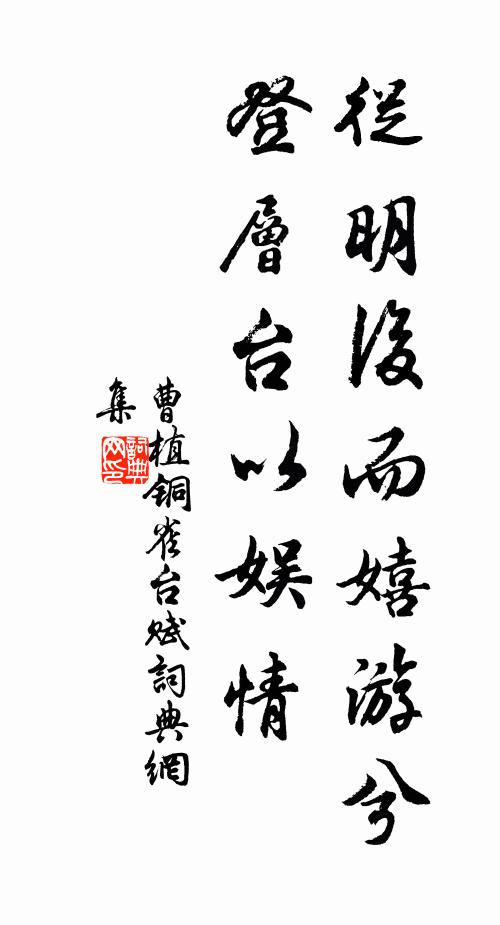 從明後而嬉游兮
登層台以娛情
曹植銅雀台賦詞典網
集
詞典
网印